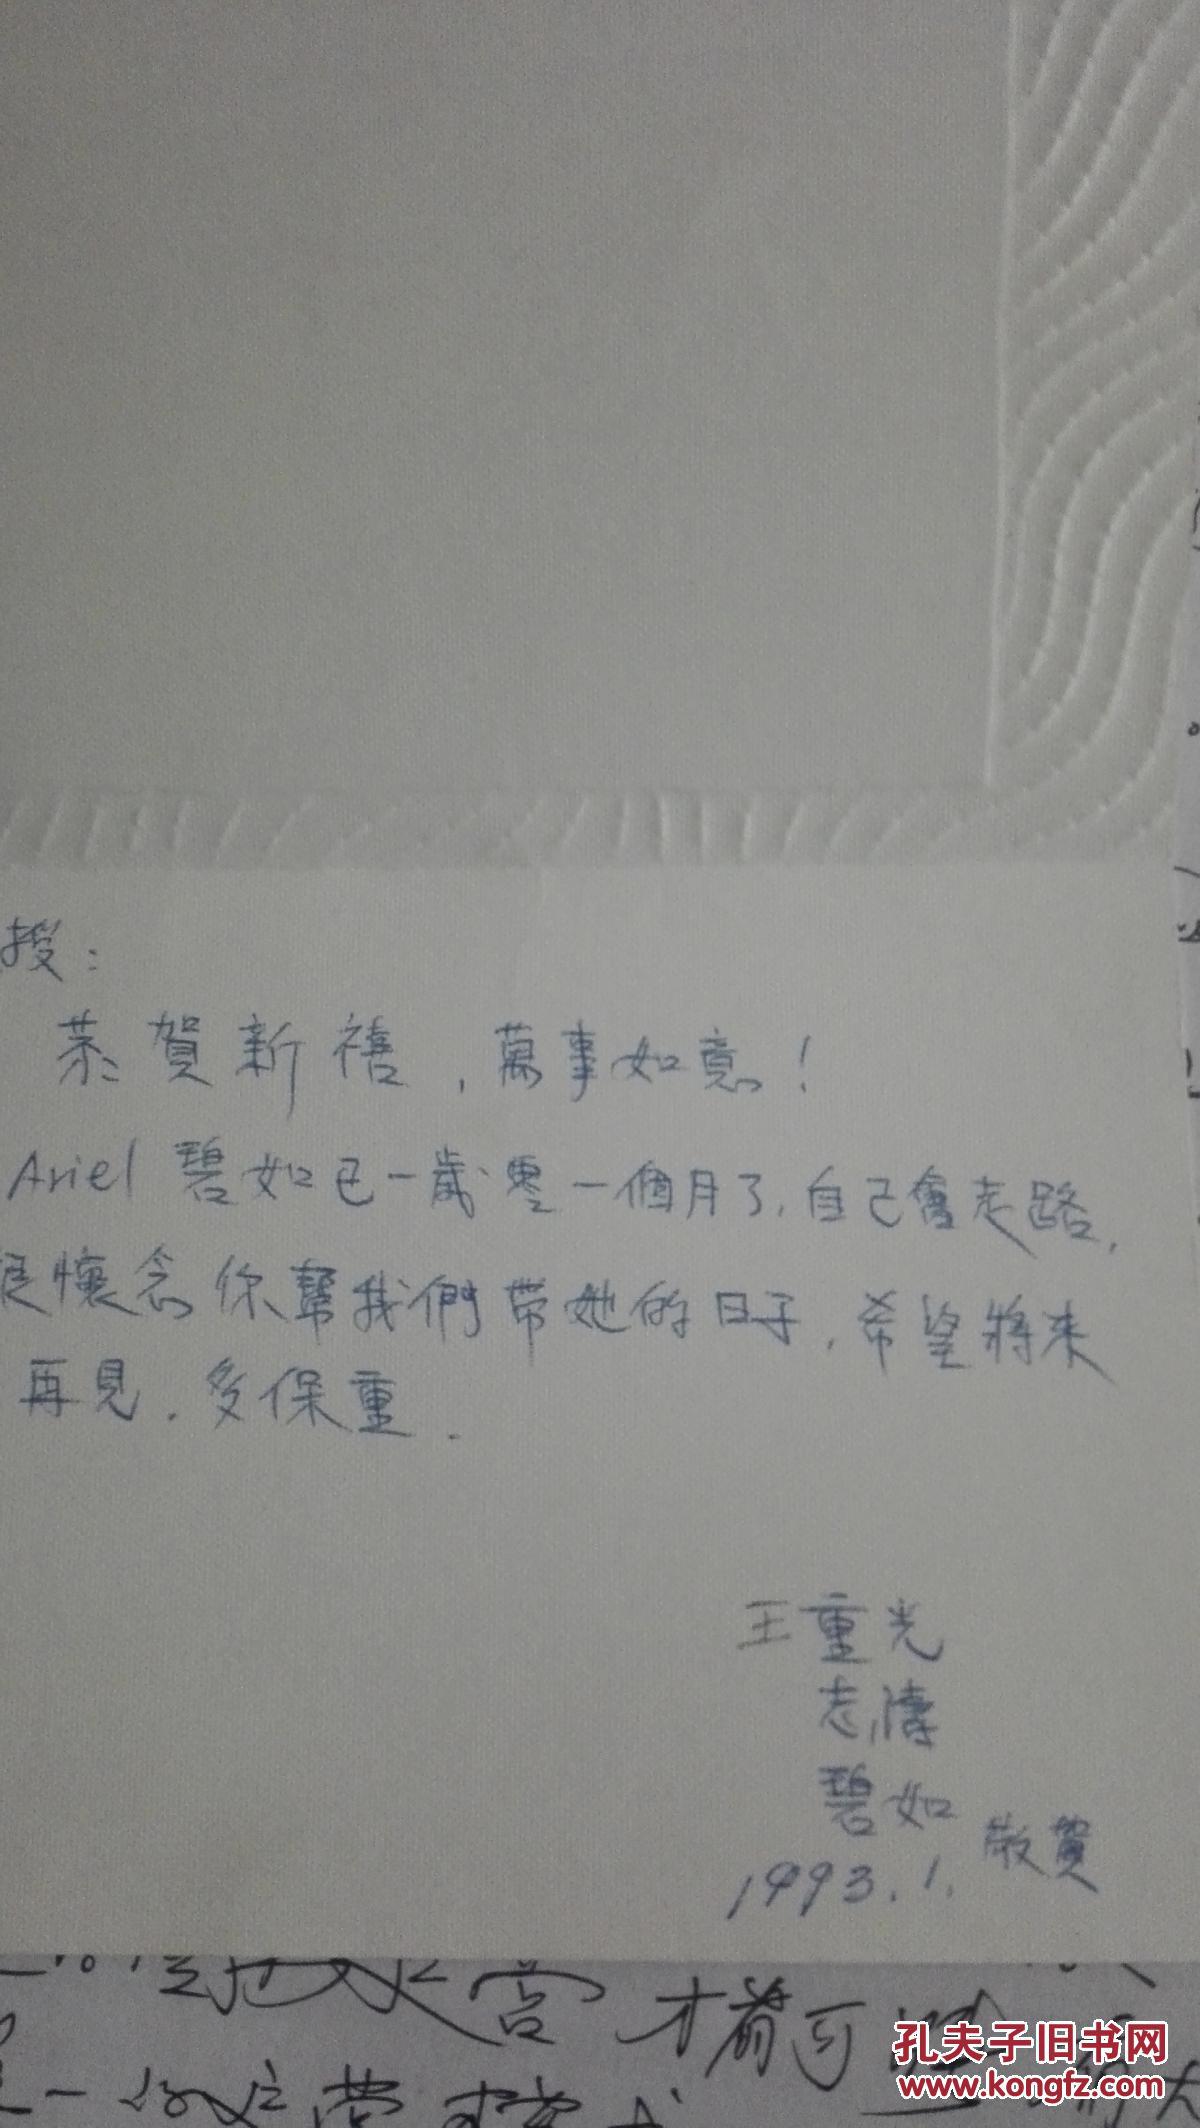 授：
恭賀新禧，萬事如意！
Ariel 碧如已一歲零一個月了，自己會走路，
很懷念你幫我們帶她的日子，希望將來
再見．多保重．
王重光
志濤
碧如
敬賀
1993.1.
才有可
孔夫子旧书网
www.kongfz.com